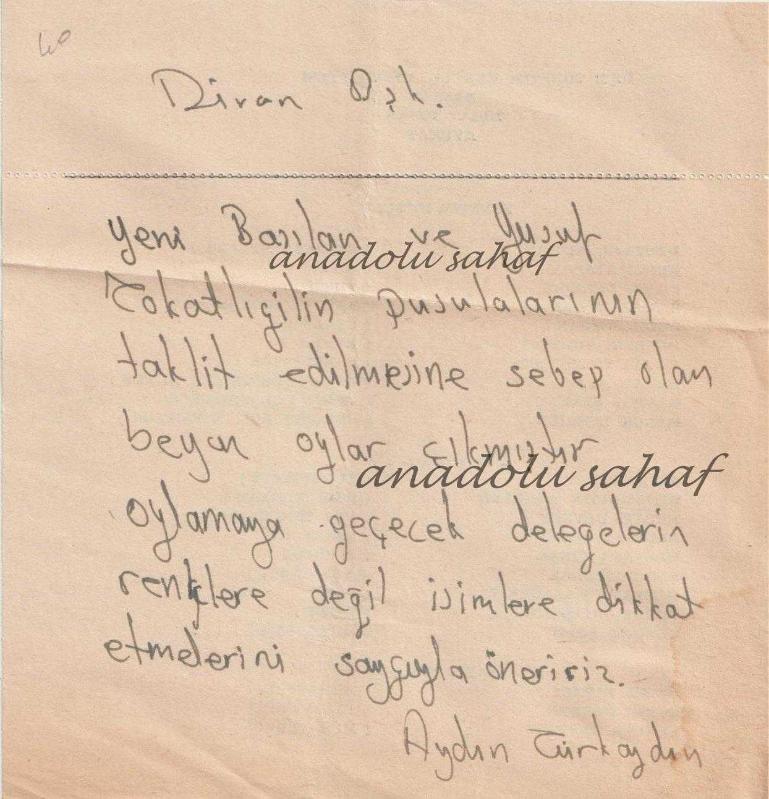 Divan Bşk.
yeni Basılan ve Yusuf
anadolu sahaf
Tokatlıgilin pusulalarının
taklit edilmesine sebep olan
beyan oylar çıkmıştır
anadolu sahaf
oylamaya geçecek delegelerin
renklere değil isimlere dikkat
etmelerini saygıyla öneririz.
Aydın Türkaydın